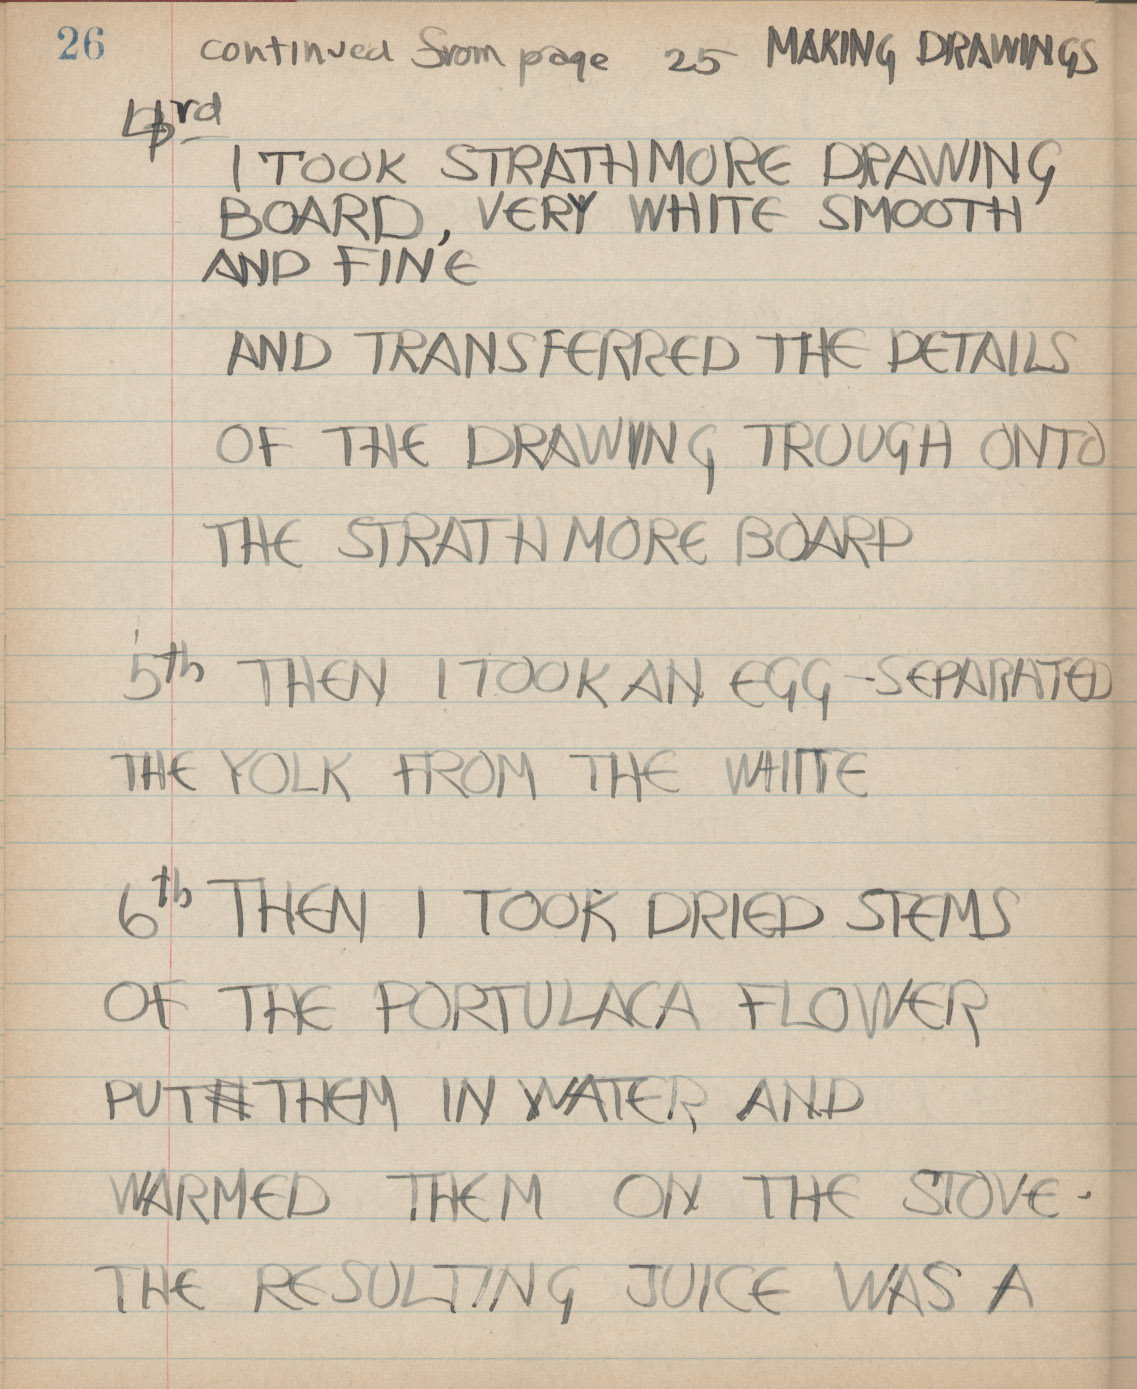 26 continued from page 25 MAKING DRAWINGS
4rd
I TOOK STRATHMORE DRAWING
BOARD, VERY WHITE SMOOTH
AND FINE
AND TRANSFERRED THE DETAILS
OF THE DRAWING TROUGH ONTO
THE STRATHMORE BOARD
5th THEN I TOOK AN EGG - SEPARATED
THE YOLK FROM THE WHITE
6th THEN I TOOK DRIED STEMS
OF THE PORTULACA FLOWER
PUT THEM IN WATER AND
WARMED THEM ON THE STOVE.
THE RESULTING JUICE WAS A